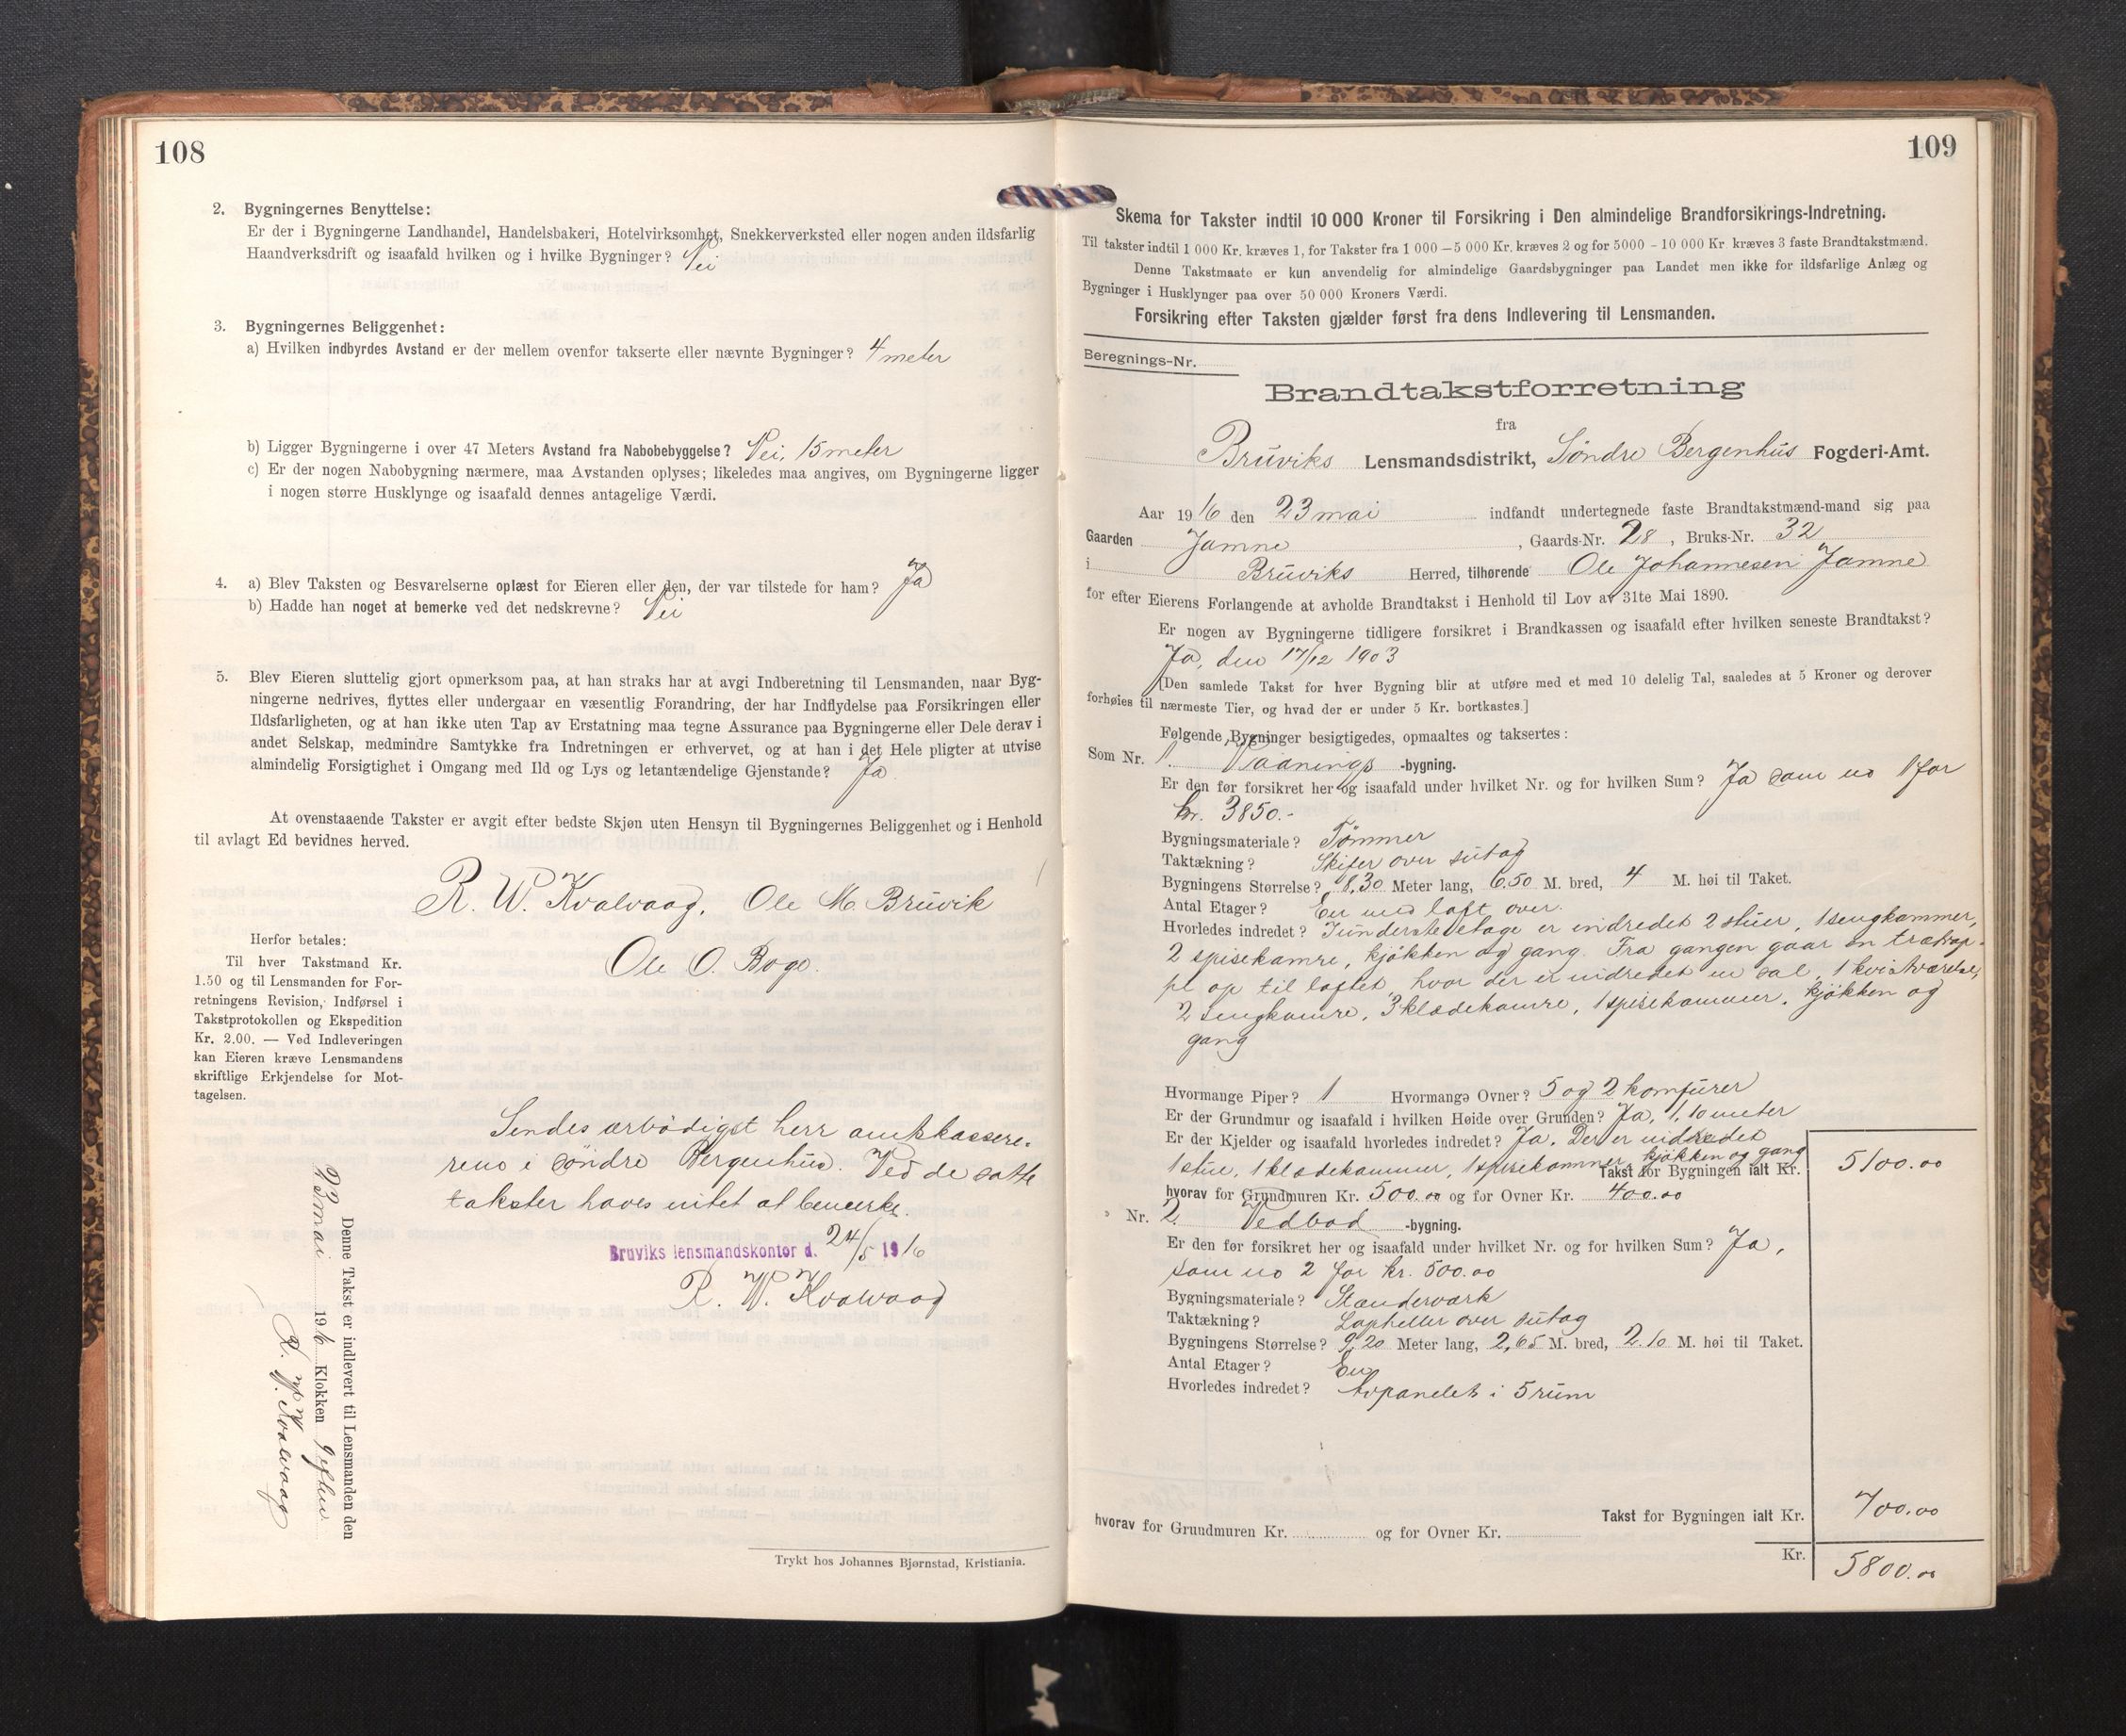 108
2. Bygningernes Benyttelse:
Er der i Bygningerne Landhandel, Handelsbakeri, Hotelvirksomhet, Snekkerverksted eller nogen anden ildsfarlig
Haandverksdrift og isaafald hvilken og i hvilke Bygninger? Nei
3. Bygningernes Beliggenhet:
a) Hvilken indbyrdes Avstand er der mellem ovenfor takserte eller nævnte Bygninger? 4 meter
b) Ligger Bygningerne i over 47 Meters Avstand fra Nabobebyggelse? Nei, 15 meter
c) Er der nogen Nabobygning nærmere, maa Avstanden oplyses; likeledes maa angives, om Bygningerne ligger
i nogen større Husklynge og isaafald dennes antagelige Værdi.
4. a) Blev Taksten og Besvarelserne oplæst for Eieren eller den, der var tilstede for ham? Ja
b) Hadde han noget at bemerke ved det nedskrevne? Nei
5. Blev Eieren sluttelig gjort opmerksom paa, at han straks har at avgi Indberetning til Lensmanden, naar Byg-
ningerne nedrives, flyttes eller undergaar en væsentlig Forandring, der har Indflydelse paa Forsikringen eller
Ildsfarligheten, og at han ikke uten Tap av Erstatning maa tegne Assurance paa Bygningerne eller Dele derav i
andet Selskap, medmindre Samtykke fra Indretningen er erhvervet, og at han i det Hele pligter at utvise
almindelig Forsigtighet i Omgang med Ild og Lys og letantændelige Gjenstande? Ja
At ovenstaaende Takster er avgit efter bedste Skjøn uten Hensyn til Bygningernes Beliggenhet og i Henhold
til avlagt Ed bevidnes herved.
R. W. Kvalvaag, Ole M. Bruvik
Ole O. Boge.
Herfor betales:
Til hver Takstmand Kr.
1.50 og til Lensmanden for For-
retningens Revision, Indførsel i
Takstprotokollen og Ekspedition
Kr. 2.00. — Ved Indleveringen
kan Eieren kræve Lensmandens
skriftlige Erkjendelse for Mot-
tagelsen.
Sendes ærbødigst herr amtskassere-
ren i Söndre Bergenhus. Ved de satte
takster haves intet at bemerke.
Bruviks lensmandskontor d. 24/5 1916
R. W. Kvalvaag
Denne Takst er indlevert til Lensmanden den
23 mai 1916 Klokken 9 eftm
R. W. Kvalvaag
Trykt hos Johannes Bjørnstad, Kristiania.
109
Skema for Takster indtil 10 000 Kroner til Forsikring i Den almindelige Brandforsikrings-Indretning.
Til takster indtil 1 000 Kr. kræves 1, for Takster fra 1 000 — 5 000 Kr. kræves 2 og for 5000 - 10 000 Kr. kræves 3 faste Brandtakstmænd.
Denne Takstmaate er kun anvendelig for almindelige Gaardsbygninger paa Landet men ikke for ildsfarlige Anlæg og
Bygninger i Husklynger paa over 50 000 Kroners Værdi.
Forsikring efter Taksten gjælder først fra dens Indlevering til Lensmanden.
Beregnings-Nr.
Brandtakstforretning
fra
Bruviks Lensmandsdistrikt, Søndre Bergenhus Fogderi-Amt.
Aar 1916 den 23 mai indfandt undertegnede faste Brandtakstmænd-mand sig paa
Gaarden Jamne, Gaards-Nr. 28, Bruks-Nr. 32
i Bruviks Herred, tilhørende Ole Johannesen Jamne
for efter Eierens Forlangende at avholde Brandtakst i Henhold til Lov av 31te Mai 1890.
Er nogen av Bygningerne tidligere forsikret i Brandkassen og isaafald efter hvilken seneste Brandtakst?
Ja, den 17/12 1903
[Den samlede Takst for hver Bygning blir at utføre med et med 10 delelig Tal, saaledes at 5 Kroner og derover
forhøies til nærmeste Tier, og hvad der er under 5 Kr. bortkastes.]
Følgende Bygninger besigtigedes, opmaaltes og taksertes:
Som Nr. 1. Vaanings -bygning.
Er den før forsikret her og isaafald under hvilket Nr. og for hvilken Sum? Ja som no 1 for
kr. 3850.-
Bygningsmateriale? Tømmer
Taktækning? Skifer over sutag
Bygningens Størrelse? 8,30 Meter lang, 6.50 M. bred, 4 M. høi til Taket.
Antal Etager? En med loft over.
Hvorledes indredet? I underste etage er indredet 2 stuer, 1 sengkammer,
2 spisekamre, kjøkken og gang. Fra gangen gaar en trætrap-
pe op til loftet, hvor der er indredet en sal, 1 kvistværelse,
2 sengkamre, 3 klædekamre, 1 spisekammer, kjøkken og
gang
Hvormange Piper? 1 Hvormange Ovner? 5 og 2 komfurer
Er der Grundmur og isaafald i hvilken Høide over Grunden? Ja, 1,10 meter
Er der Kjelder og isaafald hvorledes indredet? Ja. Der er indredet
1 stue, 1 klædekammer, 1 spisekammer, kjøkken og gang
Takst for Bygningen ialt Kr. 5100.00
hvorav for Grundmuren Kr. 500.00 og for Ovner Kr. 400.00
Nr. 2. Vedbod -bygning.
Er den før forsikret her og isaafald under hvilket Nr. og for hvilken Sum? Ja,
som no 2 for kr. 500.00
Bygningsmateriale? Stænderværk
Taktækning? Lapheller over sutag
Bygningens Størrelse? 9,20 Meter lang, 2,65 M. bred, 2.10 M. høi til Taket.
Antal Etager? En
Hvorledes indredet? Avpanelet i 5 rum
Takst for Bygningen ialt Kr. 700.00
hvorav for Grundmuren Kr. og for Ovner Kr.
Kr. 5800.00